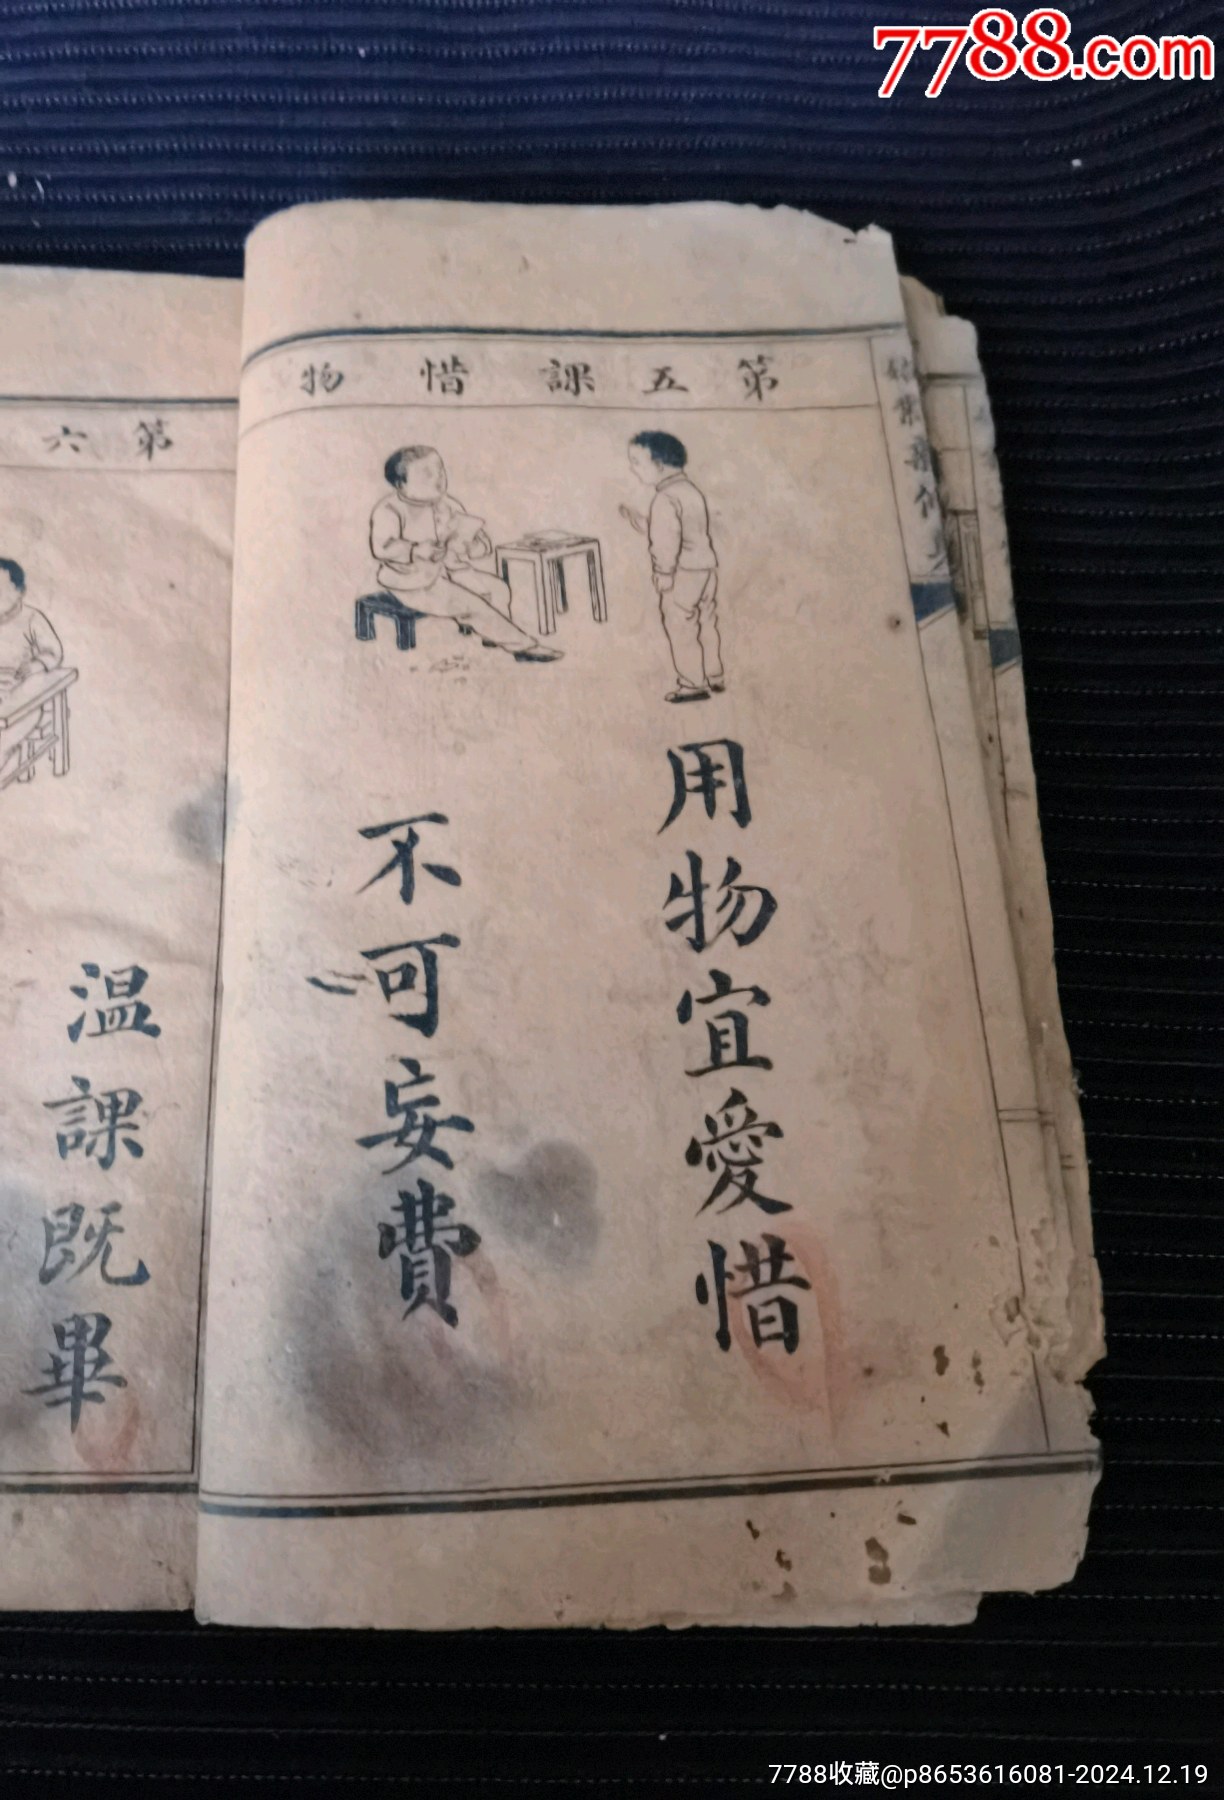 7788.com
第五課惜物
用物宜愛惜
不可妄費
第六
温課既畢
7788收藏@p8653616081-2024.12.19